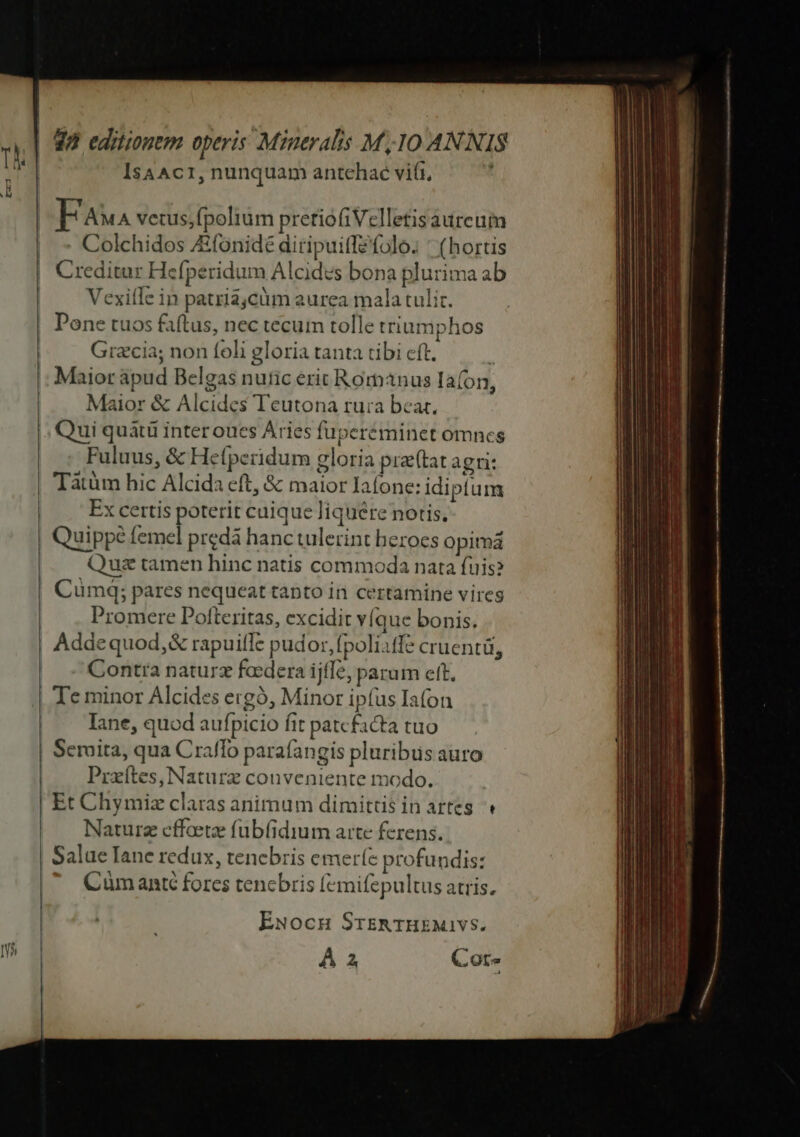 In editionem operis Mineralis M. IO ANNIS
ISAACI, nunquam antehac viſi.
FAMA vetus, ſpoliũm pretioſi Velletis aureum
Colchidos Æſonidẽ diripuiſſe ſolo: (hortis
Creditur Heſperidum Alcides bona plurima ab
Vexiſſe in patriã, cùm aurea mala tulit.
Pone tuos faſtus, nec tecum tolle triumphos
Græcia; non ſoli gloria tanta tibi eſt.
Maior apud Belgas nũc erit Romanus Iaſon,
Maior & Alcides Teutona rura beat.
Qui quãtũ inter oues Aries ſuperéminet omnes
Fuluus, & Heſperidum gloria præſtat agri:
Tãtùm hic Alcida eſt, & maior Iaſone: idipſum
Ex certis poterit cuique liquêre notis.
Quippè ſemel prędã hanc tulerint heroes opimã
Quæ tamen hinc natis commoda nata ſuis?
Cùmq; pares nequeat tanto in certamine vires
Promere Poſteritas, excidit vſque bonis.
Adde quod, & rapuiſſe pudor, ſpoliaſſe cruentũ,
Contra naturæ fœdera ijſſe, parum eſt.
Te minor Alcides ergò, Minor ipſus Iaſon
Iane, quod auſpicio fit patefacta tuo
Semita, qua Craſſo paraſangis pluribus auro
Præſtes, Naturæ conveniente modo.
Et Chymiæ claras animum dimittis in artes
Naturæ effœtæ ſubſidium arte ferens.
Salue Iane redux, tenebris emerſe profundis:
Cùm antè fores tenebris ſemiſepultus atris.
ENOCH STERTHEMIVS.
A 2 Cor-